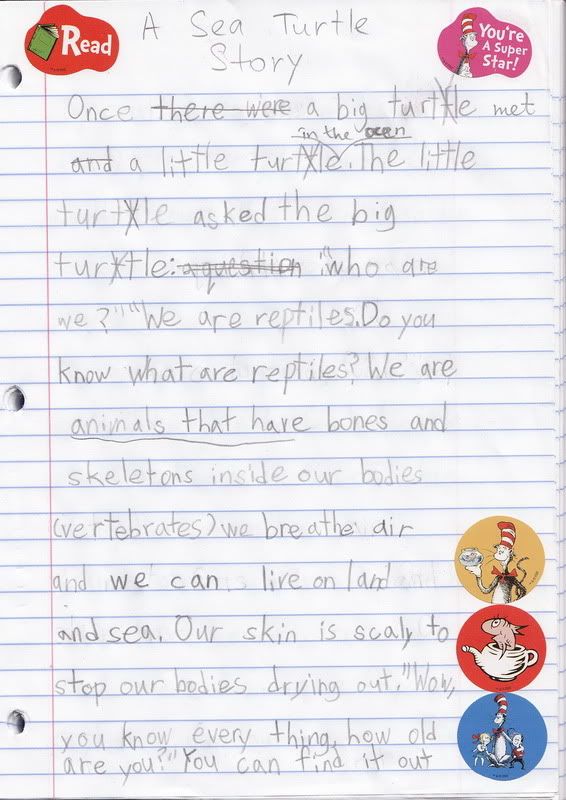 Read
You're
A Super
Star!
A Sea Turtle
Story
Once there were a big turtle met
in the ocen
and a little turtle. The little
turtle asked the big
turtle: a question "who are
we?" "We are reptiles. Do you
know what are reptiles? We are
animals that have bones and
skeletons inside our bodies
(vertebrates) we breathe air
and we can live on land
and sea. Our skin is scaly to
stop our bodies drying out." "Wow,
you know every thing, how old
are you?" You can find it out